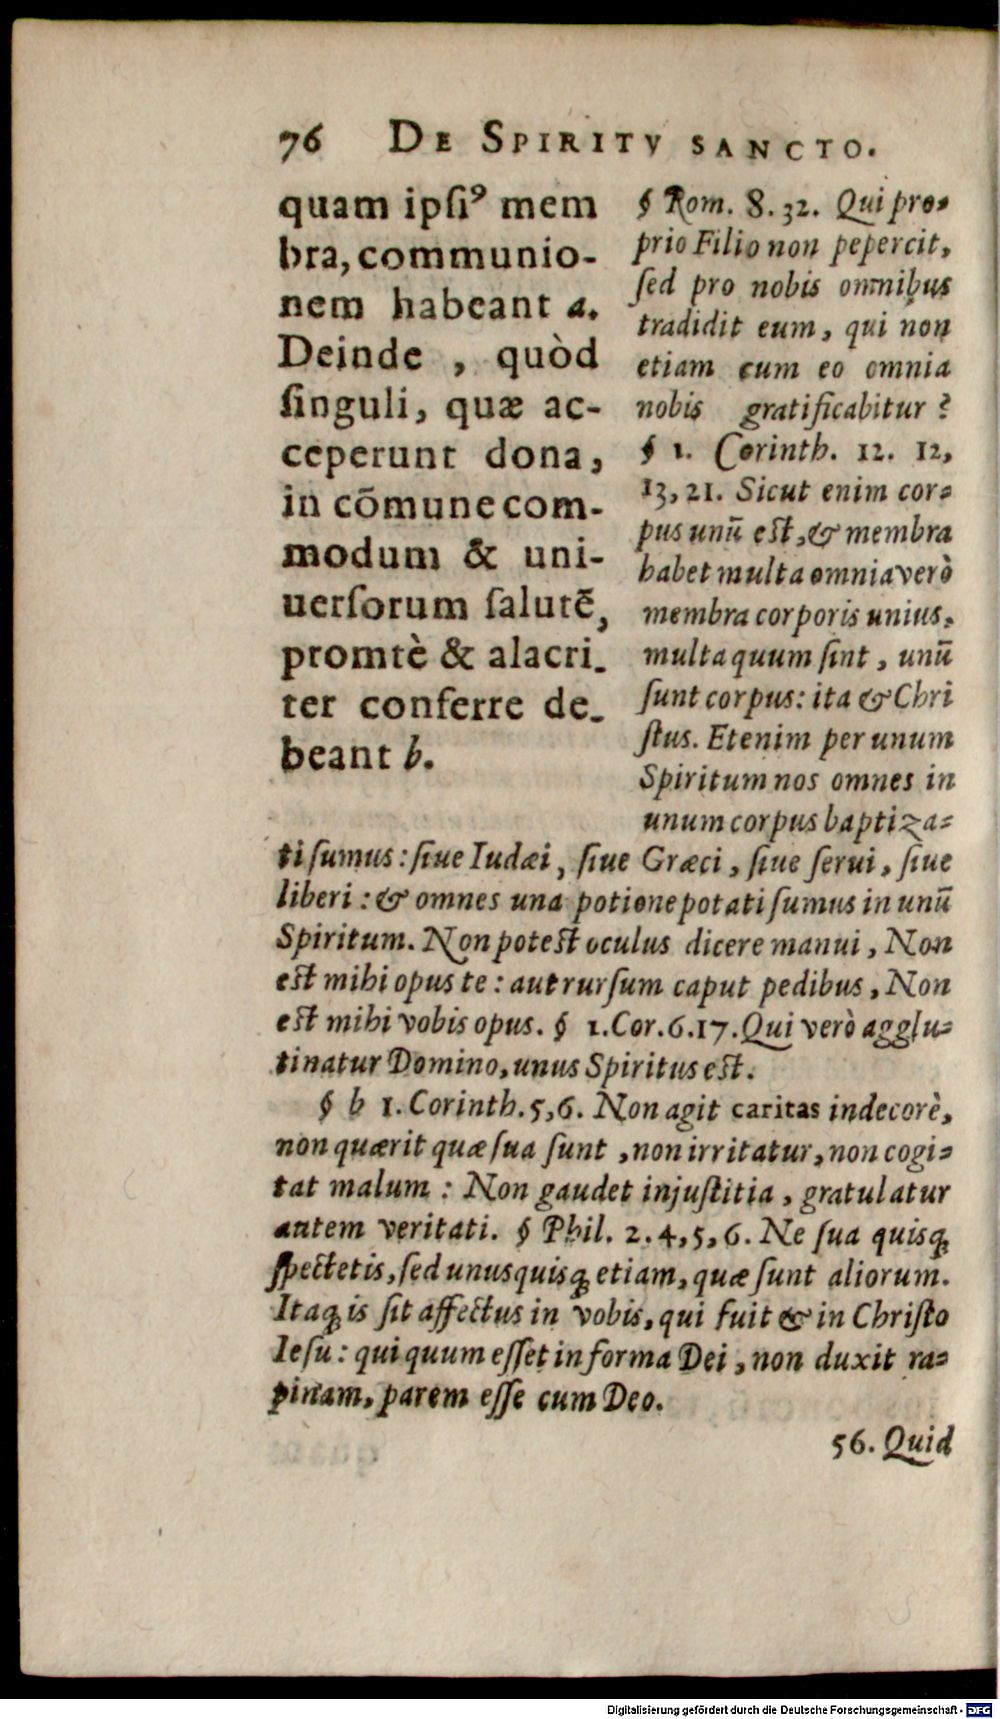 76 DE SPIRITV SANCTO.
quam ipſiꝰ mem
bra, communio-
nem habeant a.
Deinde , quòd
ſinguli, quæ ac-
ceperunt dona,
in cōmune com-
modum & uni-
uerſorum ſalutē,
promtè & alacri-
ter conferre de-
beant b.
§ Rom. 8. 32. Qui pro-
prio Filio non pepercit,
ſed pro nobis omnibus
tradidit eum, qui non
etiam cum eo omnia
nobis gratificabitur ?
§ 1. Corinth. 12. 12,
13, 21. Sicut enim cor-
pus unū eſt, & membra
habet multa omnia verò
membra corporis unius,
multa quum ſint, unū
ſunt corpus: ita & Chri
ſtus. Etenim per unum
Spiritum nos omnes in
unum corpus baptiza-
ti ſumus: ſiue Iudæi, ſiue Græci, ſiue ſerui, ſiue
liberi: & omnes una potione potati ſumus in unū
Spiritum. Non poteſt oculus dicere manui, Non
eſt mihi opus te: aut rurſum caput pedibus, Non
eſt mihi vobis opus. § 1. Cor. 6. 17. Qui verò agglu-
tinatur Domino, unus Spiritus eſt.
§ b 1. Corinth. 5, 6. Non agit caritas indecorè,
non quærit quæ ſua ſunt, non irritatur, non cogi-
tat malum : Non gaudet injuſtitia, gratulatur
autem veritati. § Phil. 2. 4, 5, 6. Ne ſua quisq;
ſpectetis, ſed unusquisq; etiam, quæ ſunt aliorum.
Itaq; is ſit affectus in vobis, qui fuit & in Chriſto
Ieſu: qui quum eſſet in forma Dei, non duxit ra-
pinam, parem eſſe cum Deo.
56. Quid
Digitalisierung gefördert durch die Deutsche Forschungsgemeinschaft - DFG